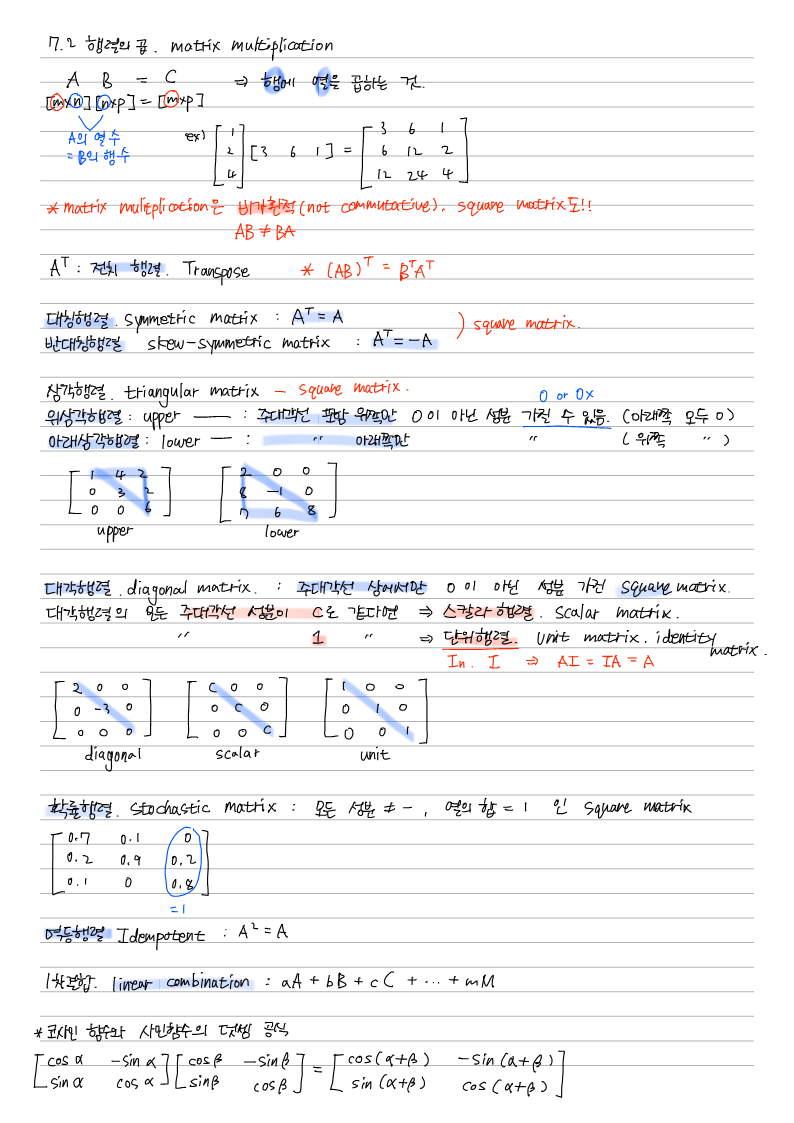 7.2 행렬의 곱. matrix multiplication
A B = C ⇒ 행에 열을 곱하는 것.
[m×n][n×p] = [m×p]
A의 열수
= B의 행수
ex) [1 2 4] [3 6 1] = [3 6 1
6 12 2
12 24 4]
* matrix mulitplication은 비가환적(not commutative). square matrix도!!
AB ≠ BA
Aᵀ : 전치 행렬. Transpose * (AB)ᵀ = BᵀAᵀ
대칭행렬. symmetric matrix : Aᵀ = A
반대칭행렬 skew-symmetric matrix : Aᵀ = -A ) square matrix.
삼각행렬. triangular matrix - square matrix.
0 or 0x
위삼각행렬 : upper ― : 주대각선 포함 위쪽만 0이 아닌 성분 가질 수 있음. (아래쪽 모두 0)
아래삼각행렬 : lower ― : " 아래쪽만 " (위쪽 " )
[1 4 2 [2 0 0
0 3 2 8 -1 0
0 0 6] 7 6 8]
upper lower
대각행렬. diagonal matrix. : 주대각선 상에서만 0이 아닌 성분 가진 square matrix.
대각행렬의 모든 주대각선 성분이 C로 같다면 ⇒ 스칼라 행렬. scalar matrix.
" 1 " ⇒ 단위행렬. unit matrix. identity matrix.
In. I ⇒ AI = IA = A
[2 0 0 [C 0 0 [1 0 0
0 -3 0 0 C 0 0 1 0
0 0 0] 0 0 C] 0 0 1]
diagonal scalar unit
확률행렬. stochastic matrix : 모든 성분 ≠ -, 열의 합 = 1 인 square matrix
[0.7 0.1 0
0.2 0.9 0.2
0.1 0 0.8]
=1
멱등행렬 Idempotent : A² = A
1차결합. linear combination : aA + bB + cC + ··· + mM
* 코사인 함수와 사인함수의 덧셈 공식
[cos α -sin α [cos β -sin β = [cos(α+β) -sin(α+β)
sin α cos α] sin β cos β] sin(α+β) cos(α+β)]